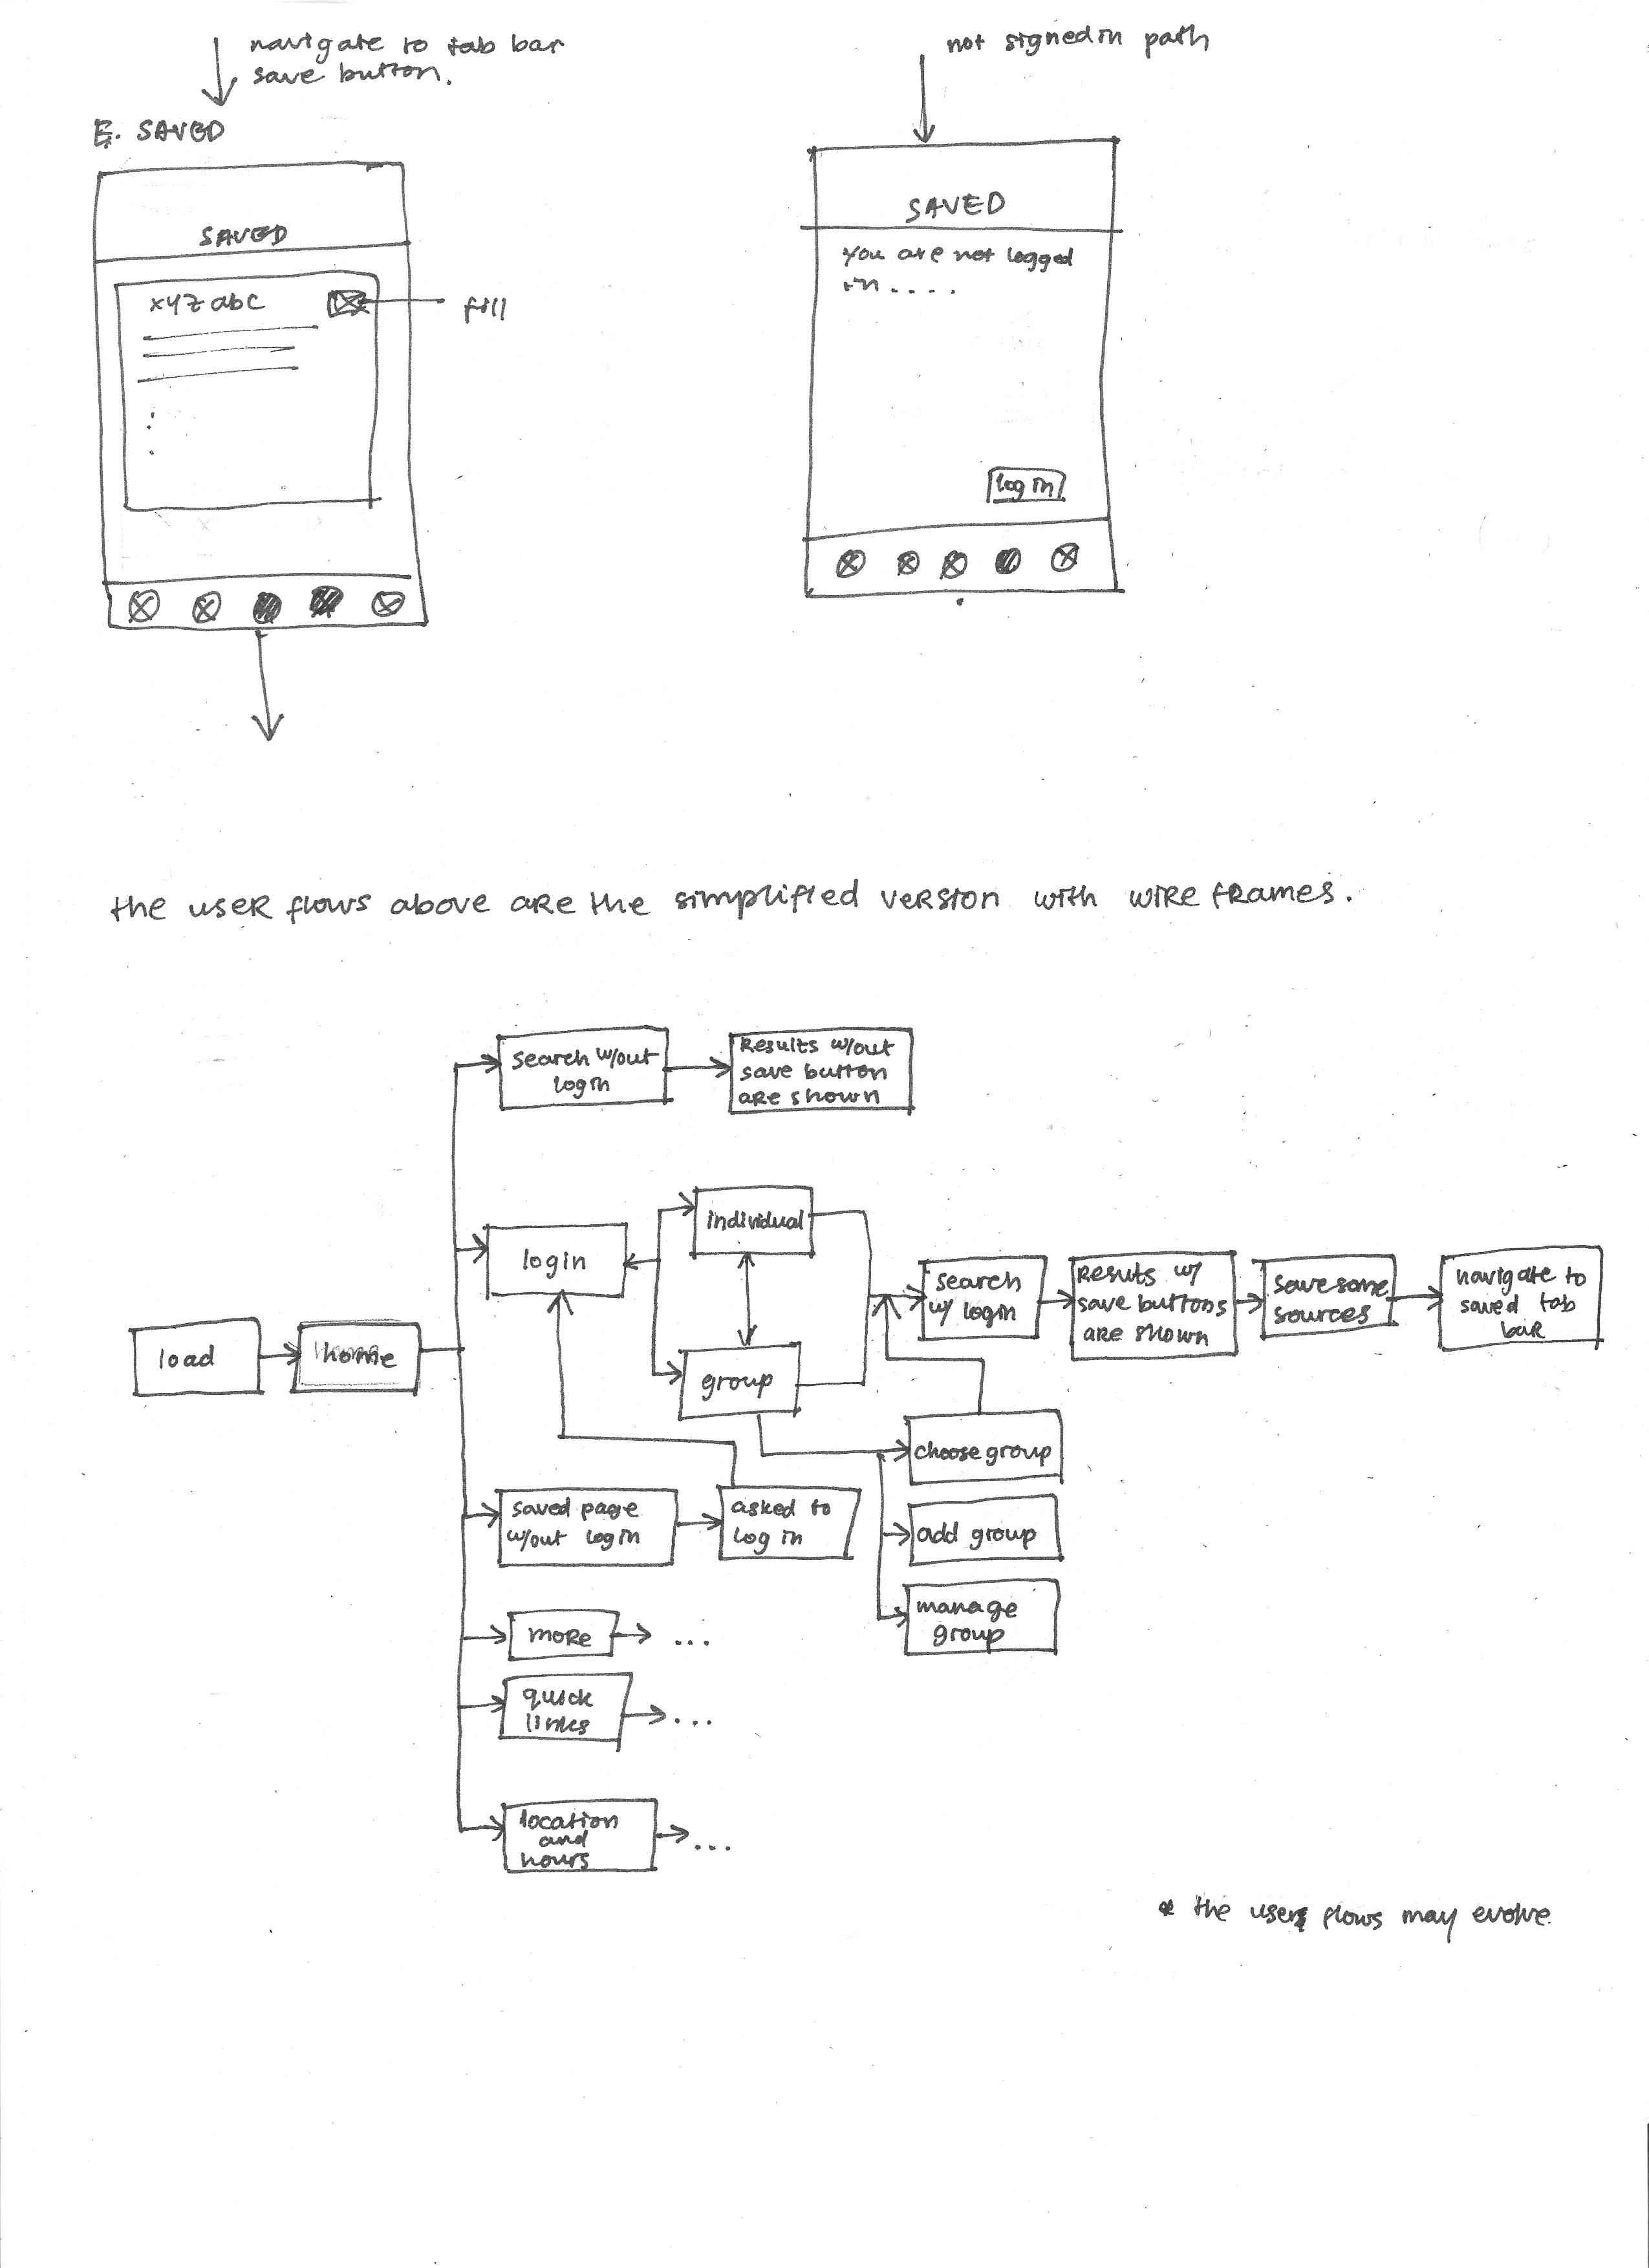 navigate to tab bar
save button.
not signed in path
E. SAVED
SAVED
xyz abc
fill
SAVED
You are not logged
in....
log in
the user flows above are the simplified version with wire frames.
search w/out
login
Results w/out
save button
are shown
individual
login
search
w/ login
Results w/
save buttons
are shown
save some
sources
navigate to
saved tab
bar
load
home
group
choose group
saved page
w/out log in
asked to
log in
add group
manage
group
more
...
quick
links
...
location
and
hours
...
* the user flows may evolve.